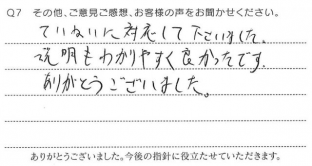 Q7 その他、ご意見ご感想、お客様の声をお聞かせください。
ていねいに対応して下さいました。
説明もわかりやすく良かったです。
ありがとうございました。
ありがとうございました。今後の指針に役立たせていただきます。